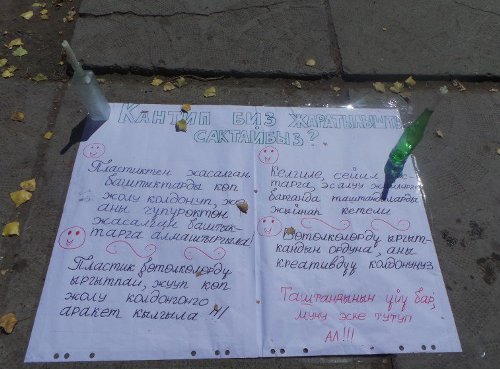 КАНТИП БИЗ ЖАРАТЫЛЫШТЫ
САКТАЙБЫЗ?
Пластиктен жасалган
баштыктарды көп
жолу колдонуп, же
аны чүпүрөктөн
жасалган баштык-
тарга алмаштыргыла!
Пластик бөтөлкөлөрдү
ыргытпай, жууп көп
жолу колдонгонго
аракет кылгыла !!!
Келгиле, сейил
тарга, жөө
баганда таштандыларды
жыйнап кетели
Бөтөлкөлөрдү ыргыт-
кандын ордуна, аны
креативдүү колдонуңуз
Таштандынын үйү бар,
муну эске тутуп
АЛ!!!